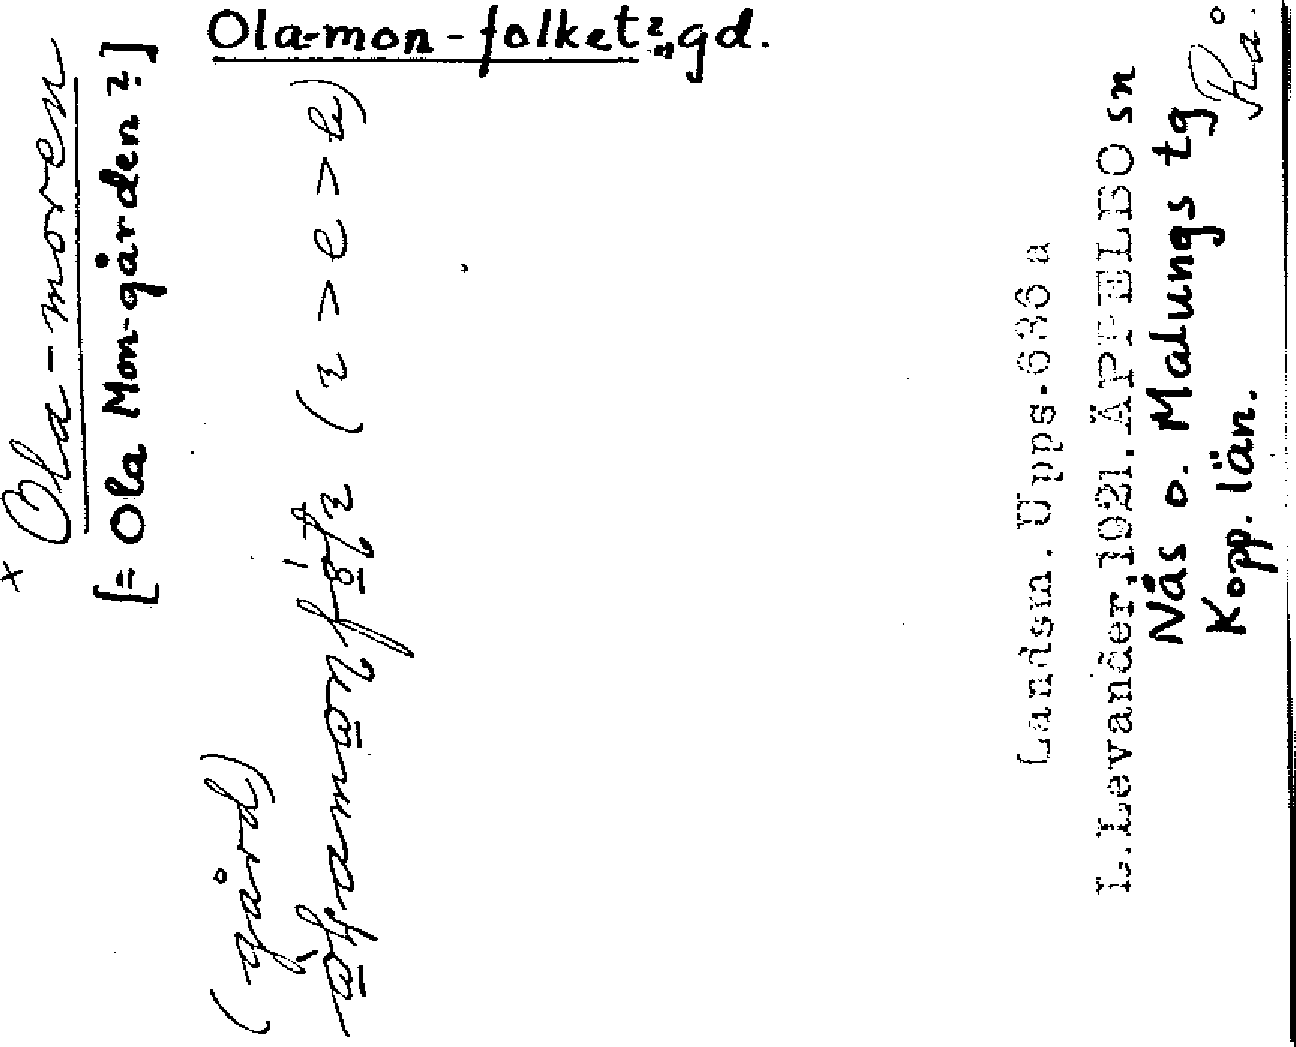 Ola-mon-folket?, gd.
× Ola-moren
[= Ola Mon-gården?]
(gård)
(ı > e > ı)
Landsm. Upps. 636 a
L. Levander, 1921. ÄPPELBO sn
Nås o. Malungs tg
Kopp. län.
Rå.